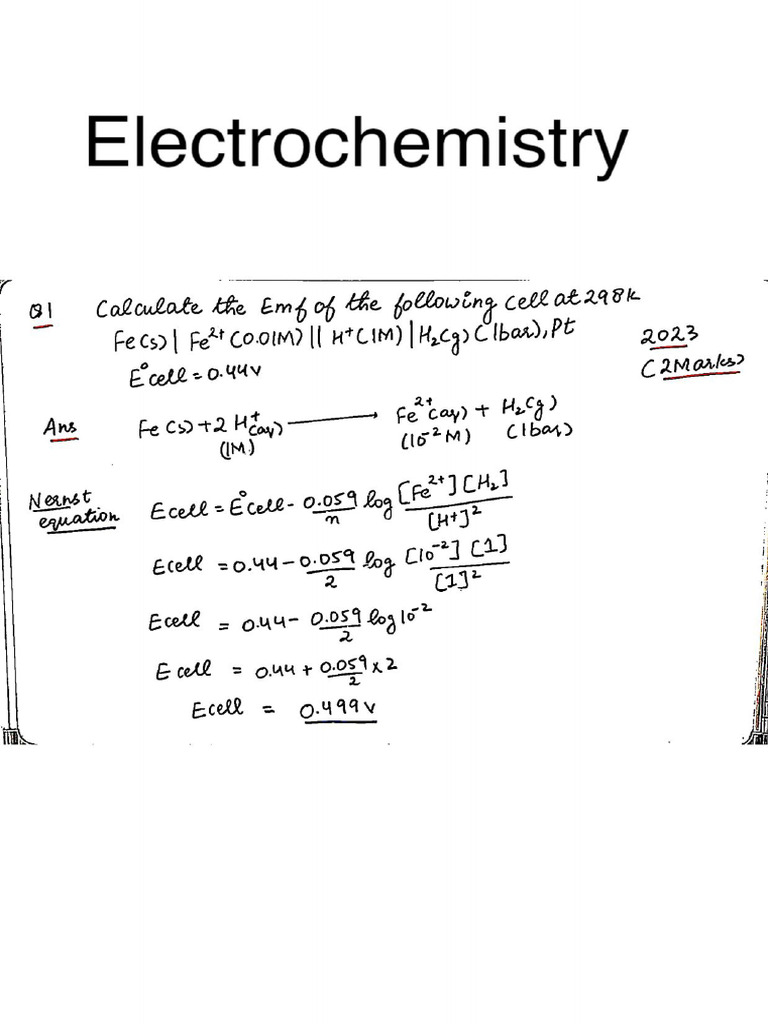 Electrochemistry
Q1 Calculate the Emf of the following cell at 298k
Fe(s) | Fe²⁺(0.01M) || H⁺(1M) | H₂(g) (1bar), Pt 2023
E°cell = 0.44v (2Marks)
Ans Fe(s) + 2H⁺(aq) ⟶ Fe²⁺(aq) + H₂(g)
(1M) (10⁻²M) (1bar)
Nernst equation Ecell = E°cell - 0.059/n log [Fe²⁺][H₂]/[H⁺]²
Ecell = 0.44 - 0.059/2 log [10⁻²][1]/[1]²
Ecell = 0.44 - 0.059/2 log10⁻²
Ecell = 0.44 + 0.059/2 x 2
Ecell = 0.499v